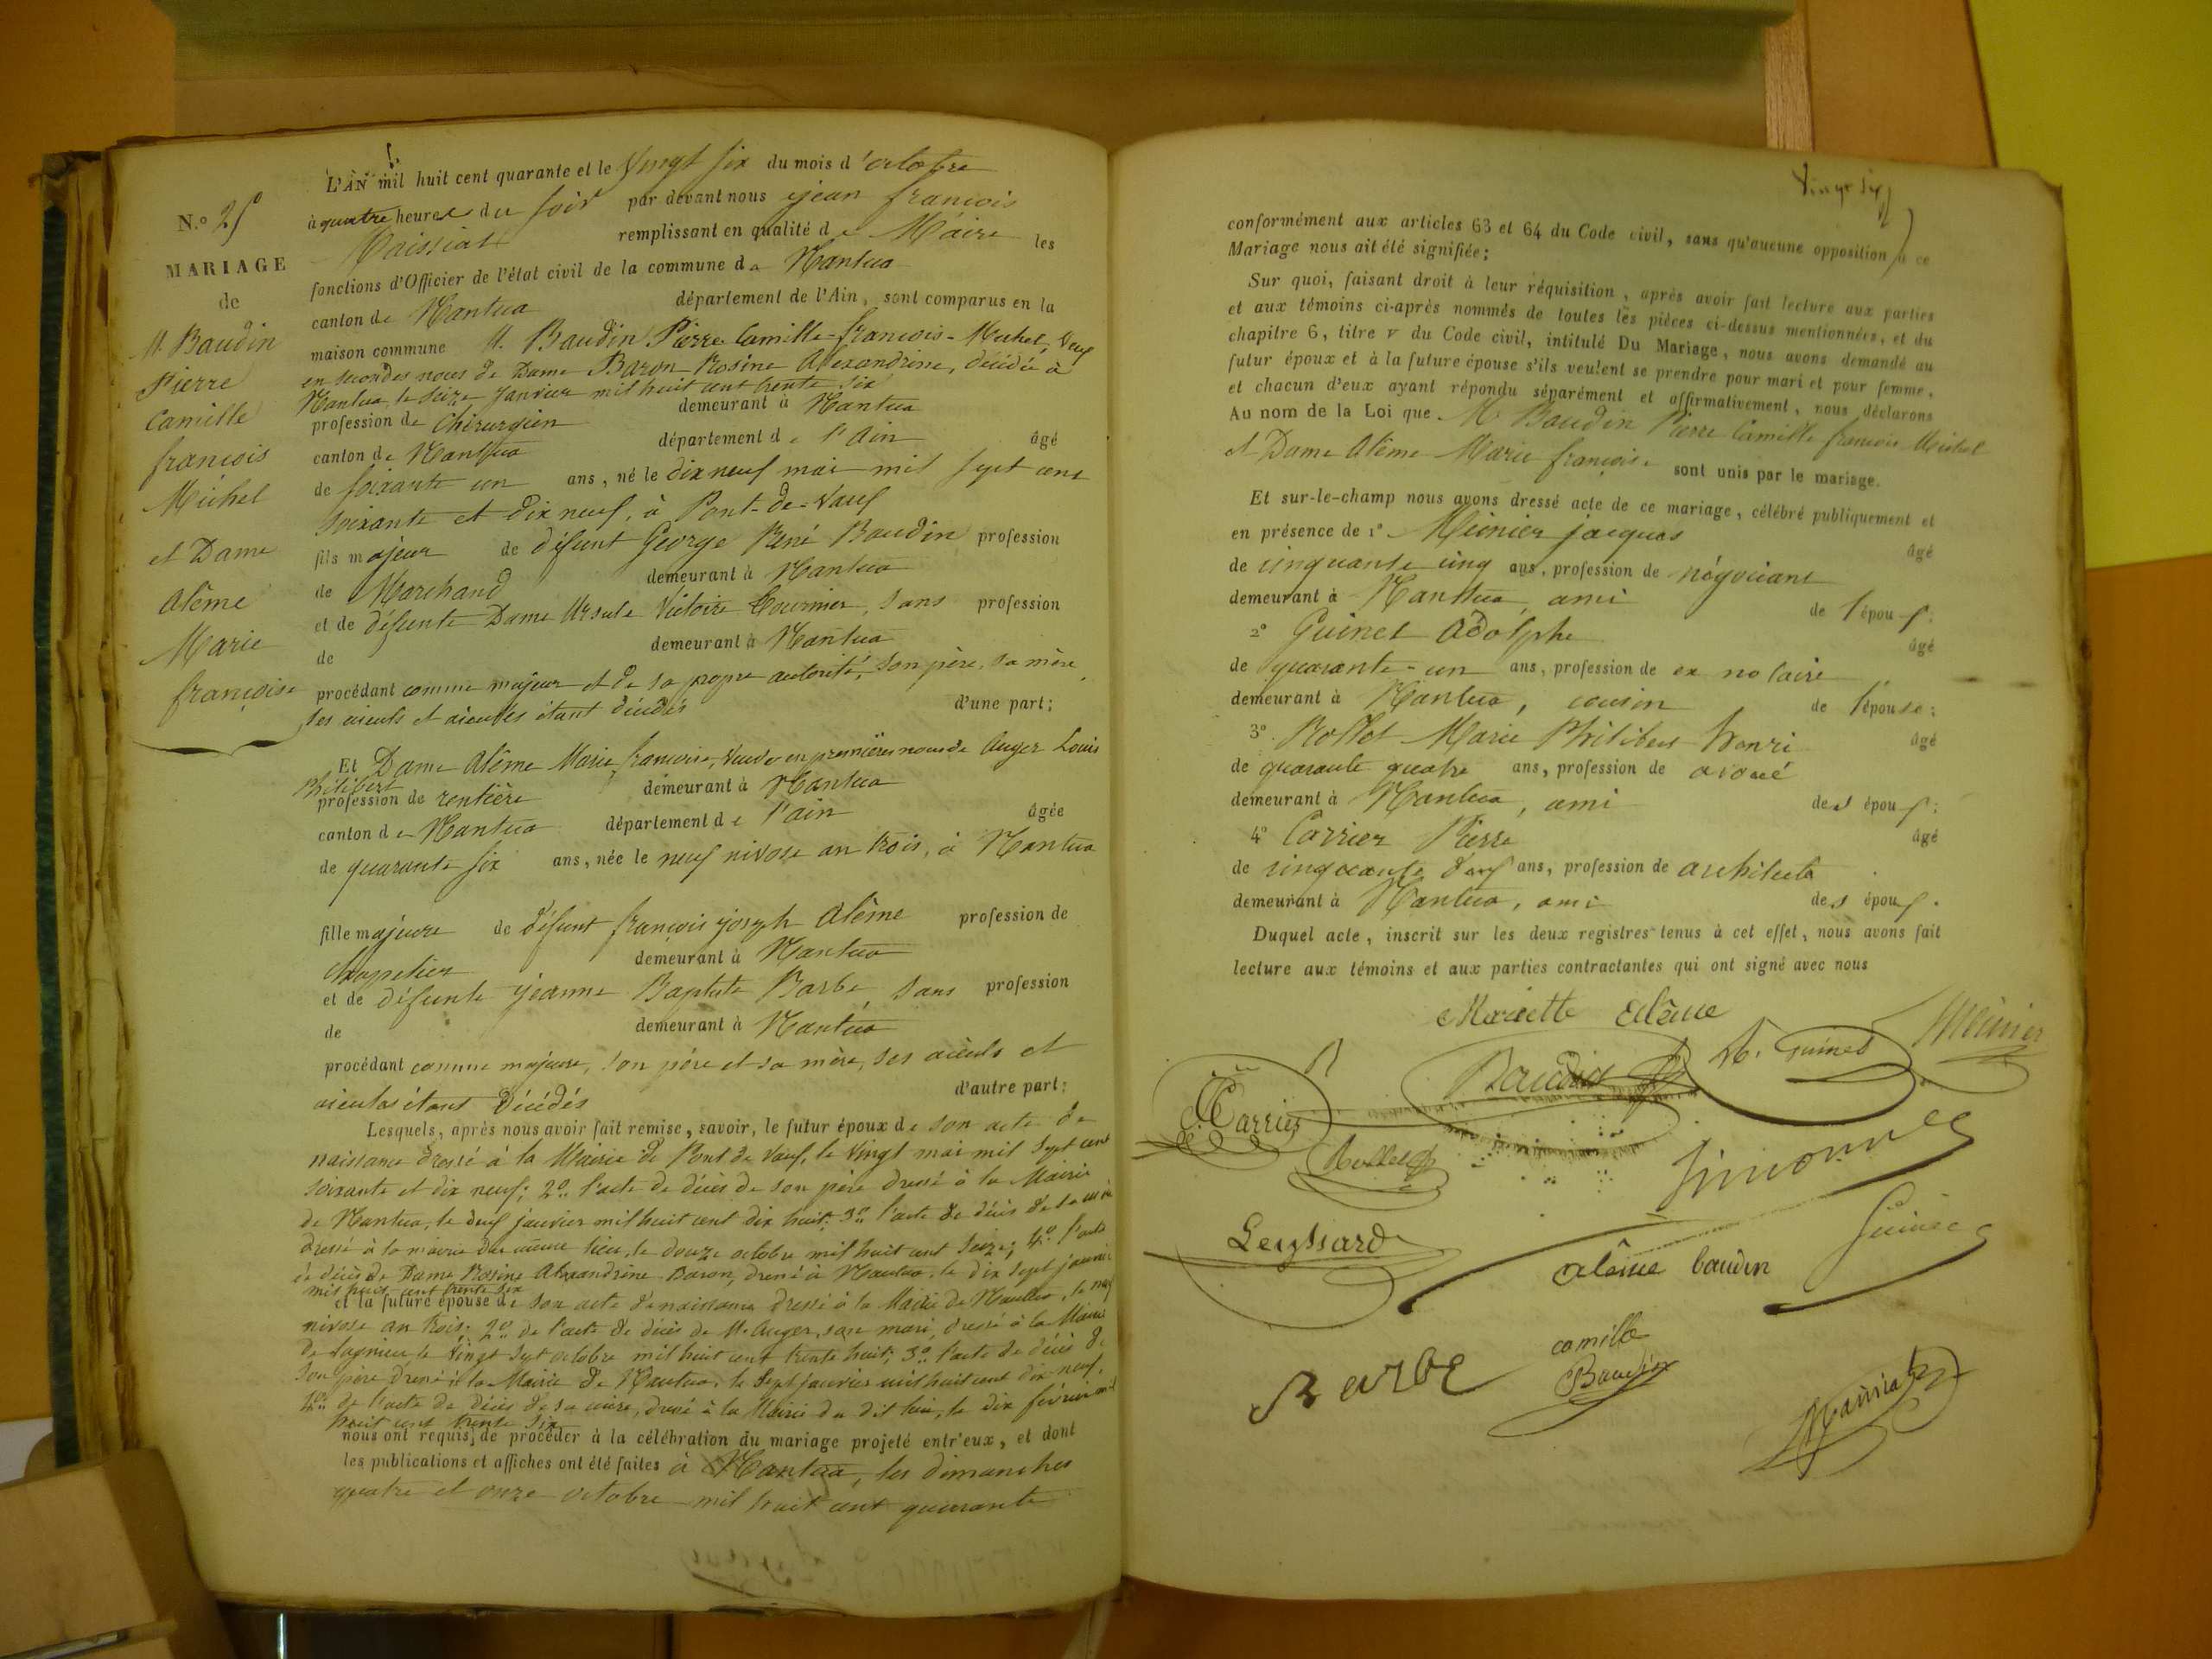 N.º 25
MARIAGE
de
M. Baudin
Pierre
Camille
françois
Michel
et Dame
Alême
Marie
françoise
L'AN mil huit cent quarante et le Vingt six du mois d'octobre
à quatre heures du soir par devant nous jean françois
Maissiat remplissant en qualité de Maire les
fonctions d'Officier de l'état civil de la commune de Nantua
canton de Nantua département de l'Ain, sont comparus en la
maison commune M. Baudin Pierre Camille-françois-Michel, Veuf
en secondes noces de Dame Baron Rosine Alexandrine, décédée à
Nantua, le seize janvier mil huit cent trente six
profession de Chirurgien demeurant à Nantua
canton de Nantua département de l'Ain âgé
de soixante un ans, né le dix neuf mai mil sept cent
soixante et dix neuf, à Pont-de-Vaux
fils majeur de défunt George René Baudin profession
de Marchand demeurant à Nantua
et de défunte Dame Ursule Victoire Tournier, sans profession
de demeurant à Nantua
procédant comme majeur et de sa propre autorité, son père, sa mère,
ses aieuls et aieules étant décédés d'une part;
Et Dame Alême Marie françoise, Veuve en premières noces de Auger Louis
Philibert
profession de rentière demeurant à Nantua
canton de Nantua département de l'ain âgée
de quarante six ans, née le neuf nivose an trois, à Nantua
fille majeure de défunt françois joseph Alême profession de
Chapelier demeurant à Nantua
et de défunte jeanne Baptiste Barbe, sans profession
de demeurant à Nantua
procédant comme majeure, son père et sa mère, ses aieuls et
aieules étant Décédés d'autre part;
Lesquels, après nous avoir fait remise, savoir, le futur époux de son acte de
naissance dressé à la Mairie de Pont de Vaux, le Vingt mai mil sept cent
soixante et dix neuf; 2º l'acte de décès de son père dressé à la Mairie
de Nantua, le deux janvier mil huit cent dix huit; 3º l'acte de décès de sa mère
dressé à la mairie du même lieu, le douze octobre mil huit cent seize; 4º l'acte
de décès de Dame Rosine Alexandrine Baron, dressé à Nantua, le dix sept janvier
mil huit cent trente six
et la future épouse de son acte de naissance dressé à la Mairie de Nantua, le neuf
nivose an trois; 2º de l'acte de décès de M. Auger, son mari, dressé à la Mairie
de Lagnieu, le Vingt sept octobre mil huit cent trente huit; 3º l'acte de décès de
son père dressé à la Mairie de Nantua, le sept janvier mil huit cent dix neuf,
4º de l'acte de décès de sa mère, dressé à la Mairie du dit lieu, le dix février mil
huit cent trente six
nous ont requis, de procéder à la célébration du mariage projeté entr'eux, et dont
les publications et affiches ont été faites à Nantua, les dimanches
quatre et onze octobre mil huit cent quarante
Vingt six
conformément aux articles 63 et 64 du Code civil, sans qu'aucune opposition à ce
Mariage nous ait été signifiée;
Sur quoi, faisant droit à leur réquisition, après avoir fait lecture aux parties
et aux témoins ci-après nommés de toutes les pièces ci-dessus mentionnées, et du
chapitre 6, titre v du Code civil, intitulé Du Mariage, nous avons demandé au
futur époux et à la future épouse s'ils veulent se prendre pour mari et pour femme,
et chacun d'eux ayant répondu séparément et affirmativement, nous déclarons
Au nom de la Loi que M Baudin Pierre Camille françois Michel
et Dame Alême Marie françoise sont unis par le mariage.
Et sur-le-champ nous avons dressé acte de ce mariage, célébré publiquement et
en présence de 1º Meinier jacques âgé
de cinquante cinq ans, profession de négociant
demeurant à Nantua, ami de l'époux;
2º Guinet Adolphe âgé
de quarante-un ans, profession de ex notaire
demeurant à Nantua, cousin de l'épouse;
3º Rollet Marie Philibert henri âgé
de quarante quatre ans, profession de avoué
demeurant à Nantua, ami des époux;
4º Carrier Pierre âgé
de cinquante deux ans, profession de architecte
demeurant à Nantua, ami des époux.
Duquel acte, inscrit sur les deux registres tenus à cet effet, nous avons fait
lecture aux témoins et aux parties contractantes qui ont signé avec nous
Mariette Alême
Baudin
A. Guinet
Meinier
Carrier
Rollet
Simonnet
Guinet
alême baudin
camille
Baudin
Barbe
Maissiat